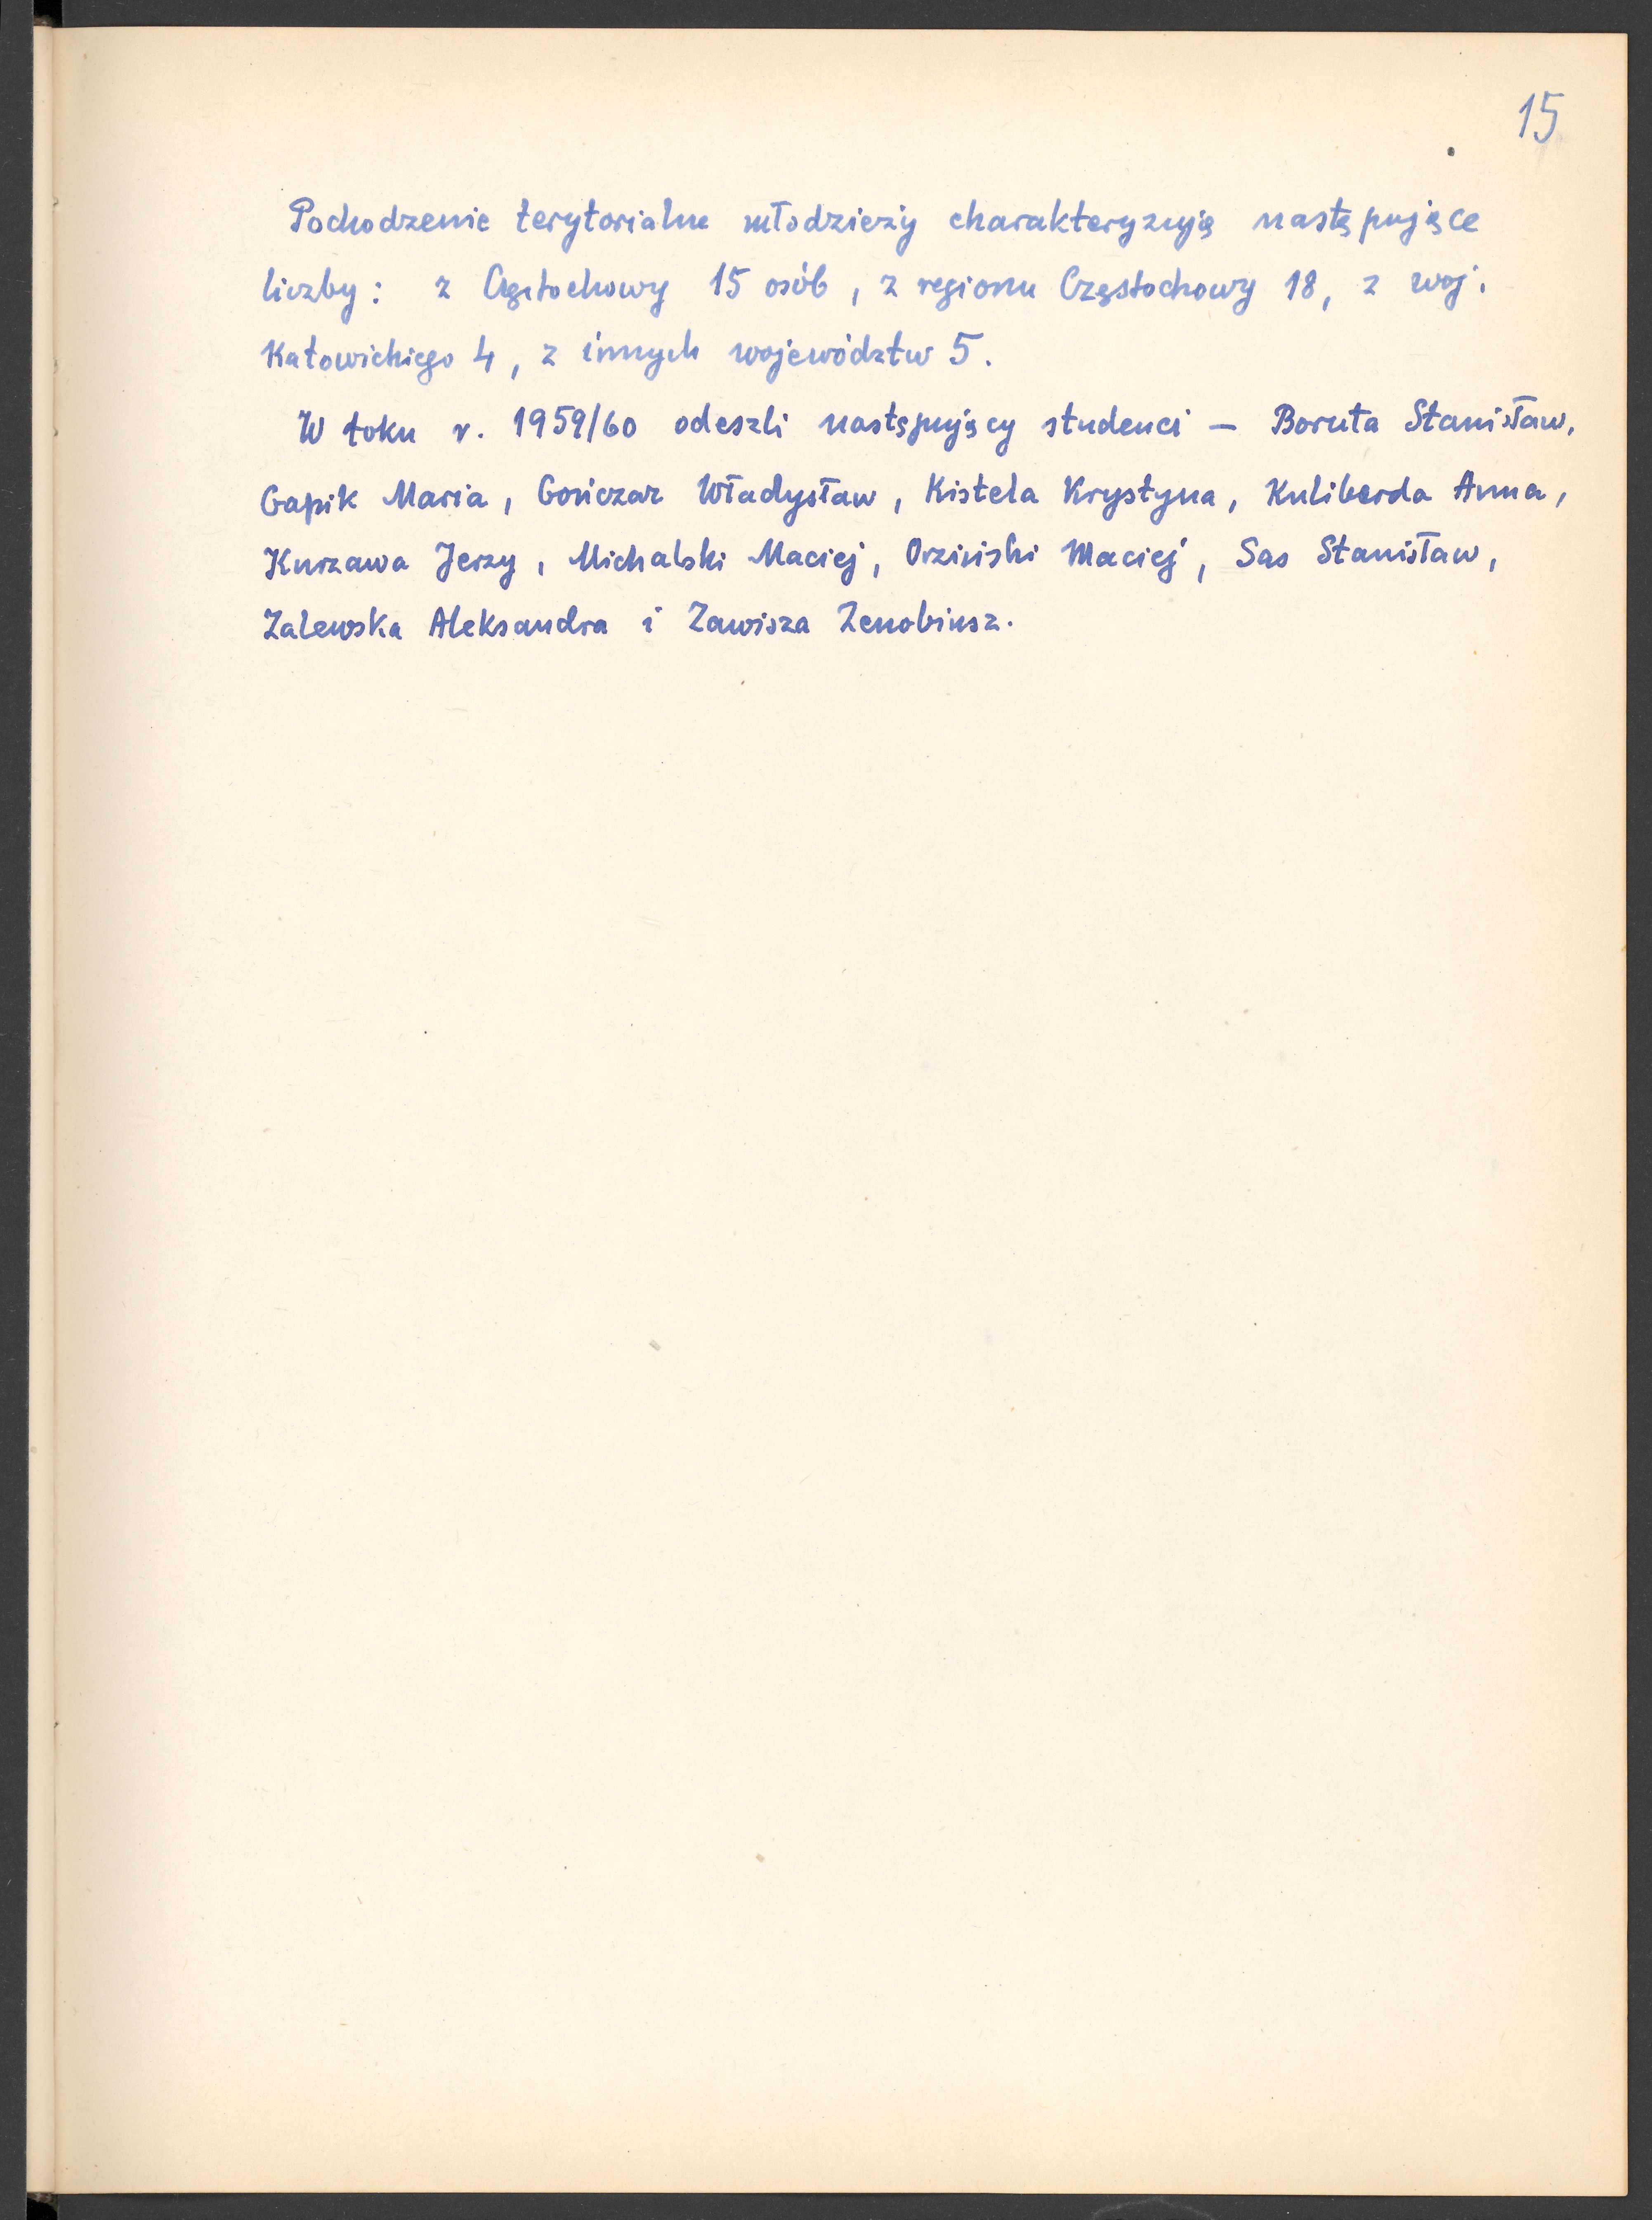 15
Pochodzenie terytorialne młodzieży charakteryzują następujące
liczby: z Częstochowy 15 osób, z regionu Częstochowy 18, z woj.
Katowickiego 4, z innych województw 5.
W toku r. 1959/60 odeszli następujący studenci — Boruta Stanisław,
Gapik Maria, Gończar Władysław, Kistela Krystyna, Kuliberda Anna,
Kurzawa Jerzy, Michalski Maciej, Orziński Maciej, Sas Stanisław,
Zalewska Aleksandra i Zawisza Zenobiusz.